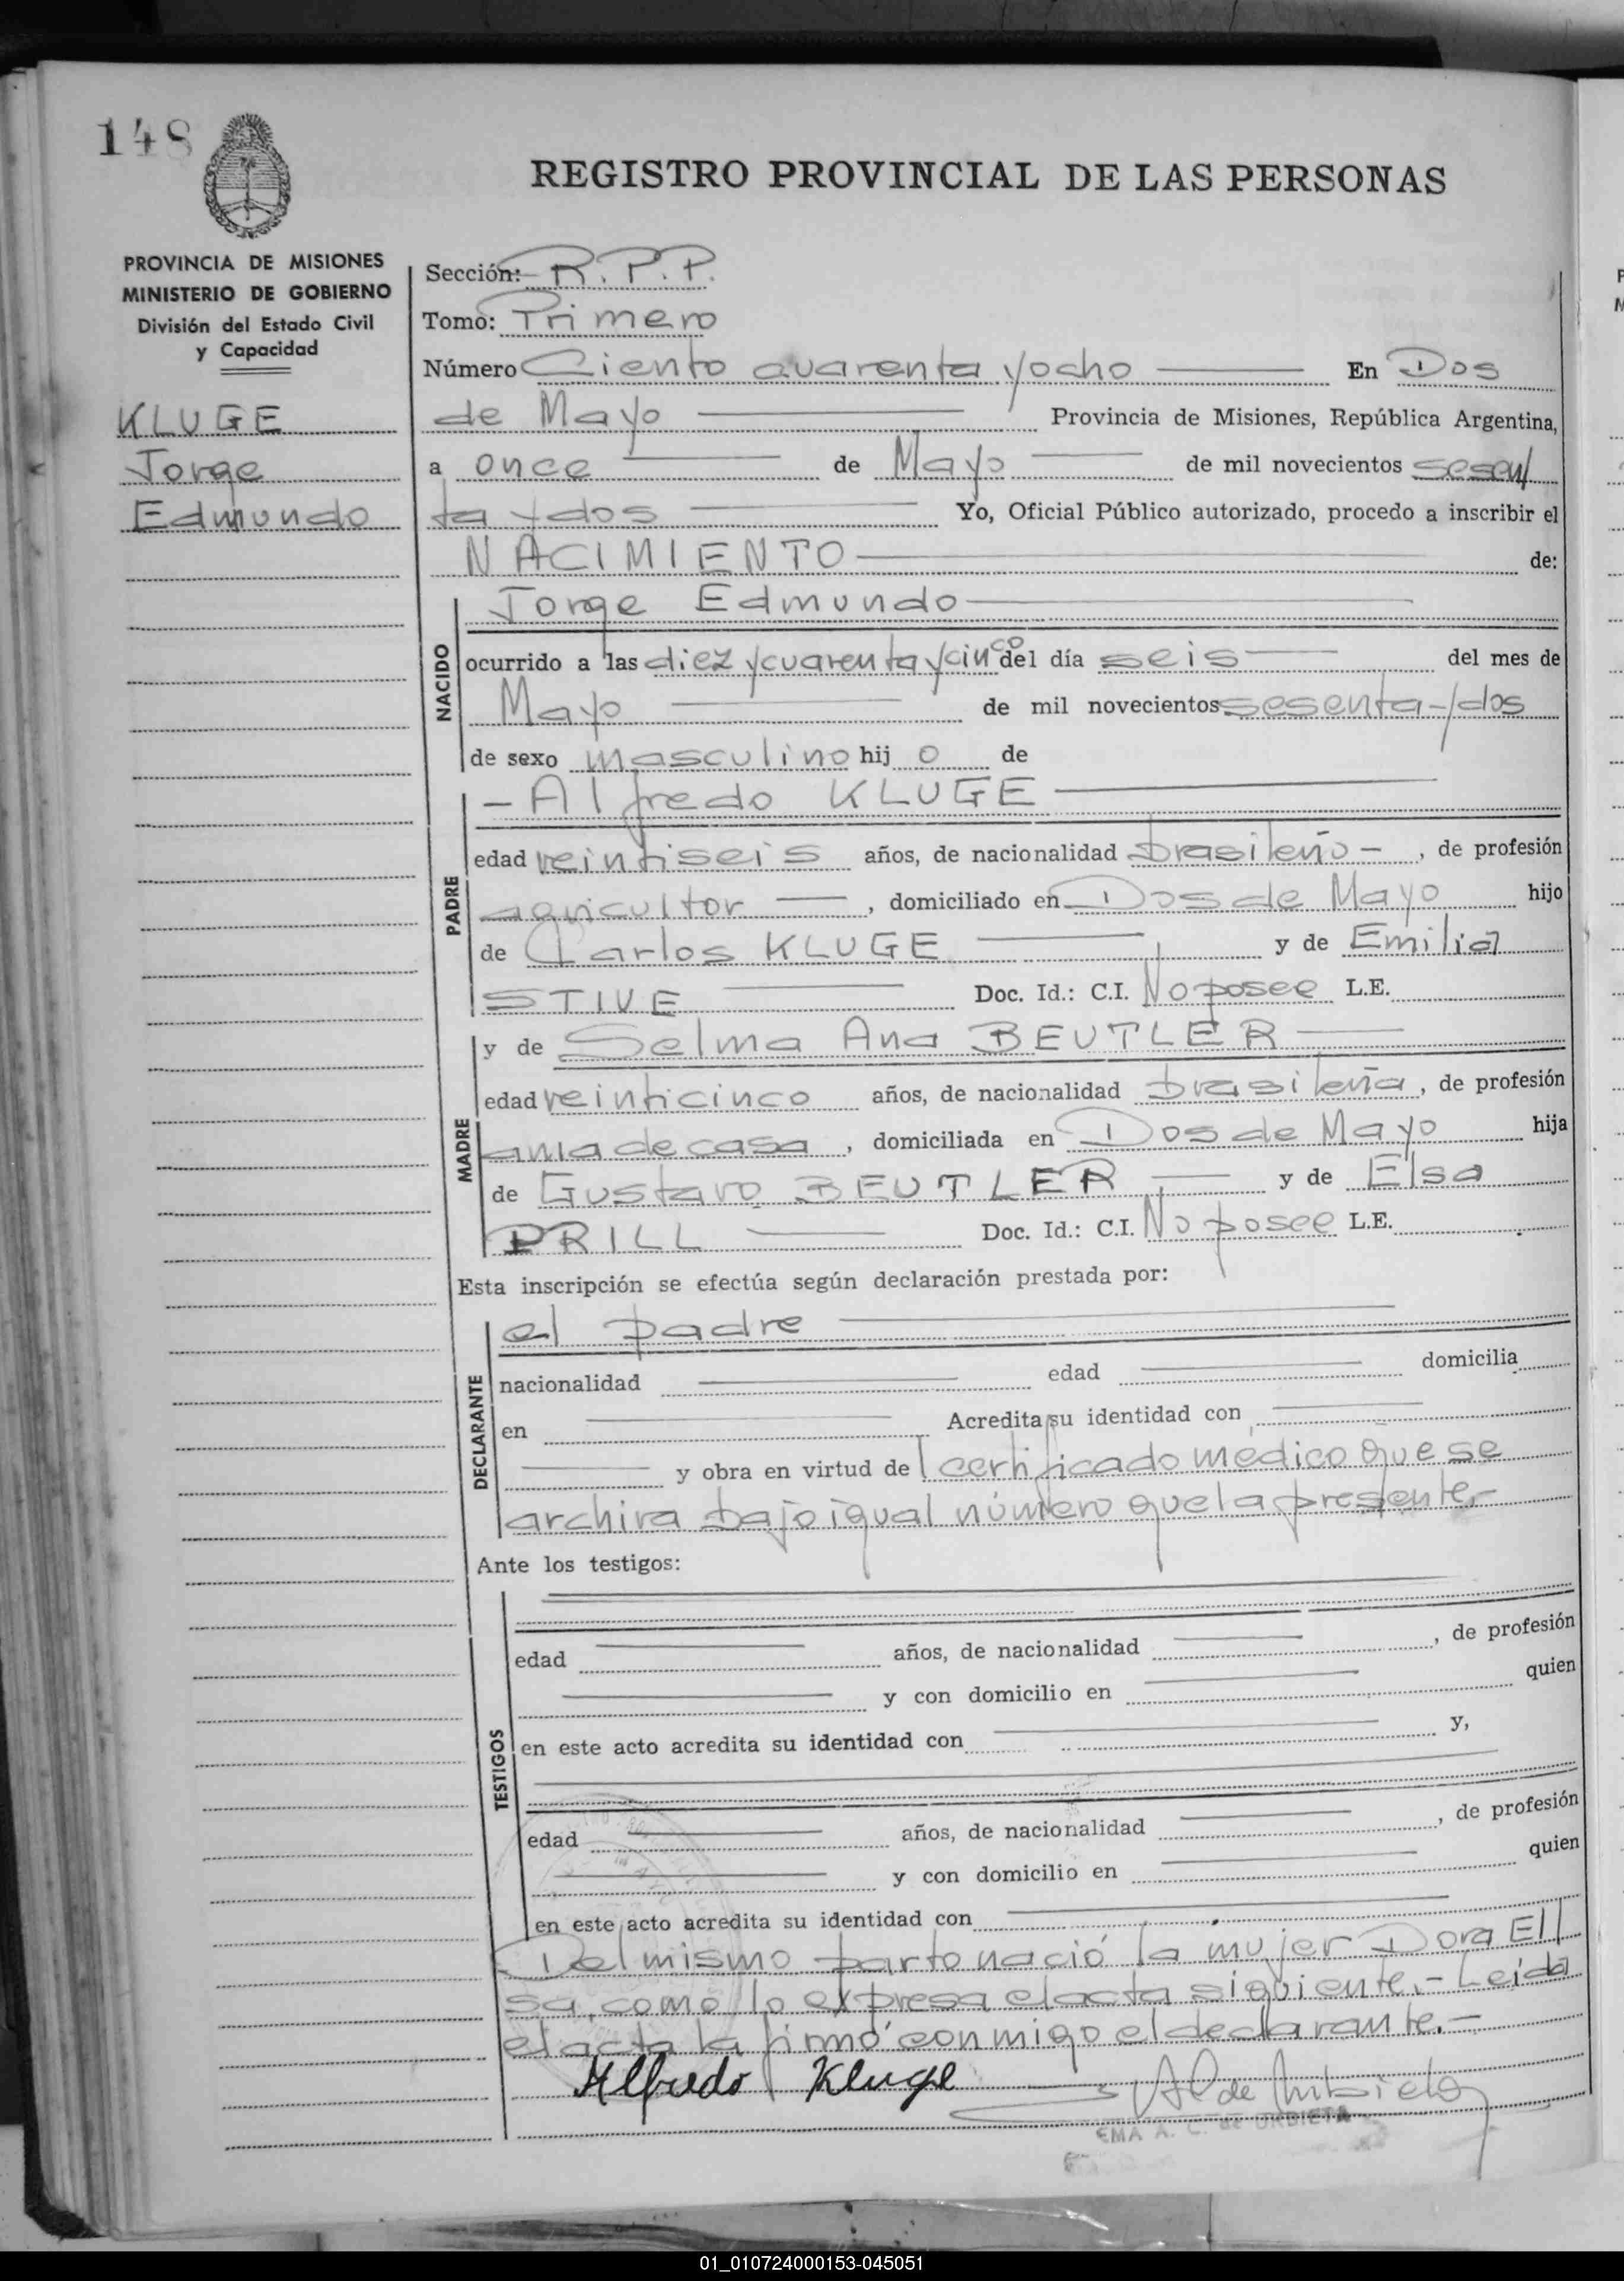 148
REGISTRO PROVINCIAL DE LAS PERSONAS
PROVINCIA DE MISIONES
MINISTERIO DE GOBIERNO
División del Estado Civil
y Capacidad
KLUGE
Jorge
Edmundo
Sección: R. P. P.
Tomo: Primero
Número Ciento cuarenta y ocho En Dos
de Mayo Provincia de Misiones, República Argentina,
a once de Mayo de mil novecientos sesen
ta y dos Yo, Oficial Público autorizado, procedo a inscribir el
NACIMIENTO de:
NACIDO
Jorge Edmundo
ocurrido a las diez y cuarenta y cinco del día seis del mes de
Mayo de mil novecientos sesenta y dos
de sexo masculino hij o de
PADRE
- Alfredo KLUGE
edad veintiseis años, de nacionalidad brasileño -, de profesión
agricultor, domiciliado en Dos de Mayo hijo
de Carlos KLUGE y de Emilia
STIVE Doc. Id.: C.I. No posee L.E.
MADRE
y de Selma Ana BEUTLER
edad veinticinco años, de nacionalidad brasileña, de profesión
ama de casa, domiciliada en Dos de Mayo hija
de Gustavo BEUTLER y de Elsa
PRILL Doc. Id.: C.I. No posee L.E.
Esta inscripción se efectúa según declaración prestada por:
DECLARANTE
el padre
nacionalidad edad domicilia
en Acredita su identidad con
y obra en virtud del certificado médico que se
archiva bajo igual número que la presente.-
Ante los testigos:
TESTIGOS
edad años, de nacionalidad , de profesión
y con domicilio en quien
en este acto acredita su identidad con y,
edad años, de nacionalidad , de profesión
y con domicilio en quien
en este acto acredita su identidad con
Del mismo parto nació la mujer Dora El
sa, como lo expresa el acta siguiente.- Leída
el acta la firmó conmigo el declarante.-
Alfredo Kluge
EMA A. C. de URBIETA
01_010724000153-045051